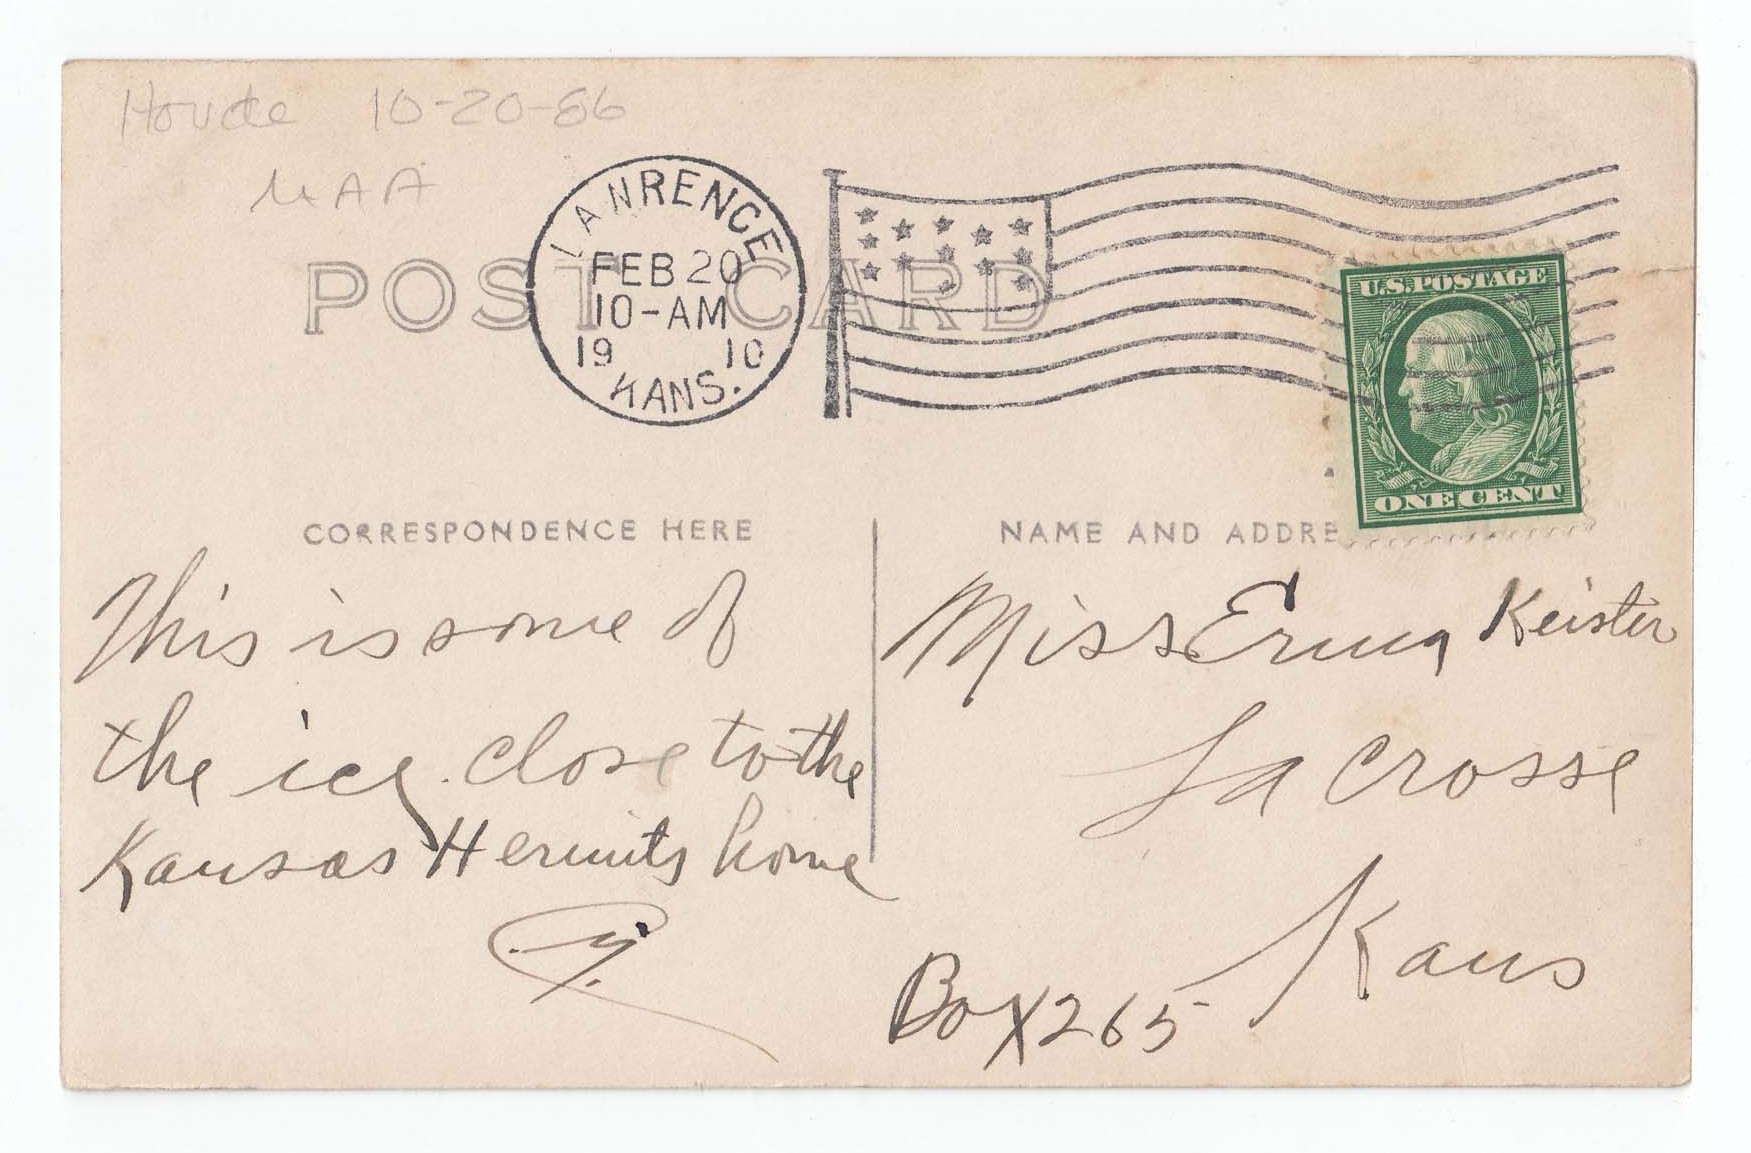 Houde 10-20-86
LAWRENCE
FEB 20
10-AM
19 10
KANS.
POST CARD
U.S. POSTAGE
ONE CENT
CORRESPONDENCE HERE
NAME AND ADDRE
This is some of
the ice close to the
Kansas Hermits home
Miss Erma Keister
La Crosse
Kans
Box 265